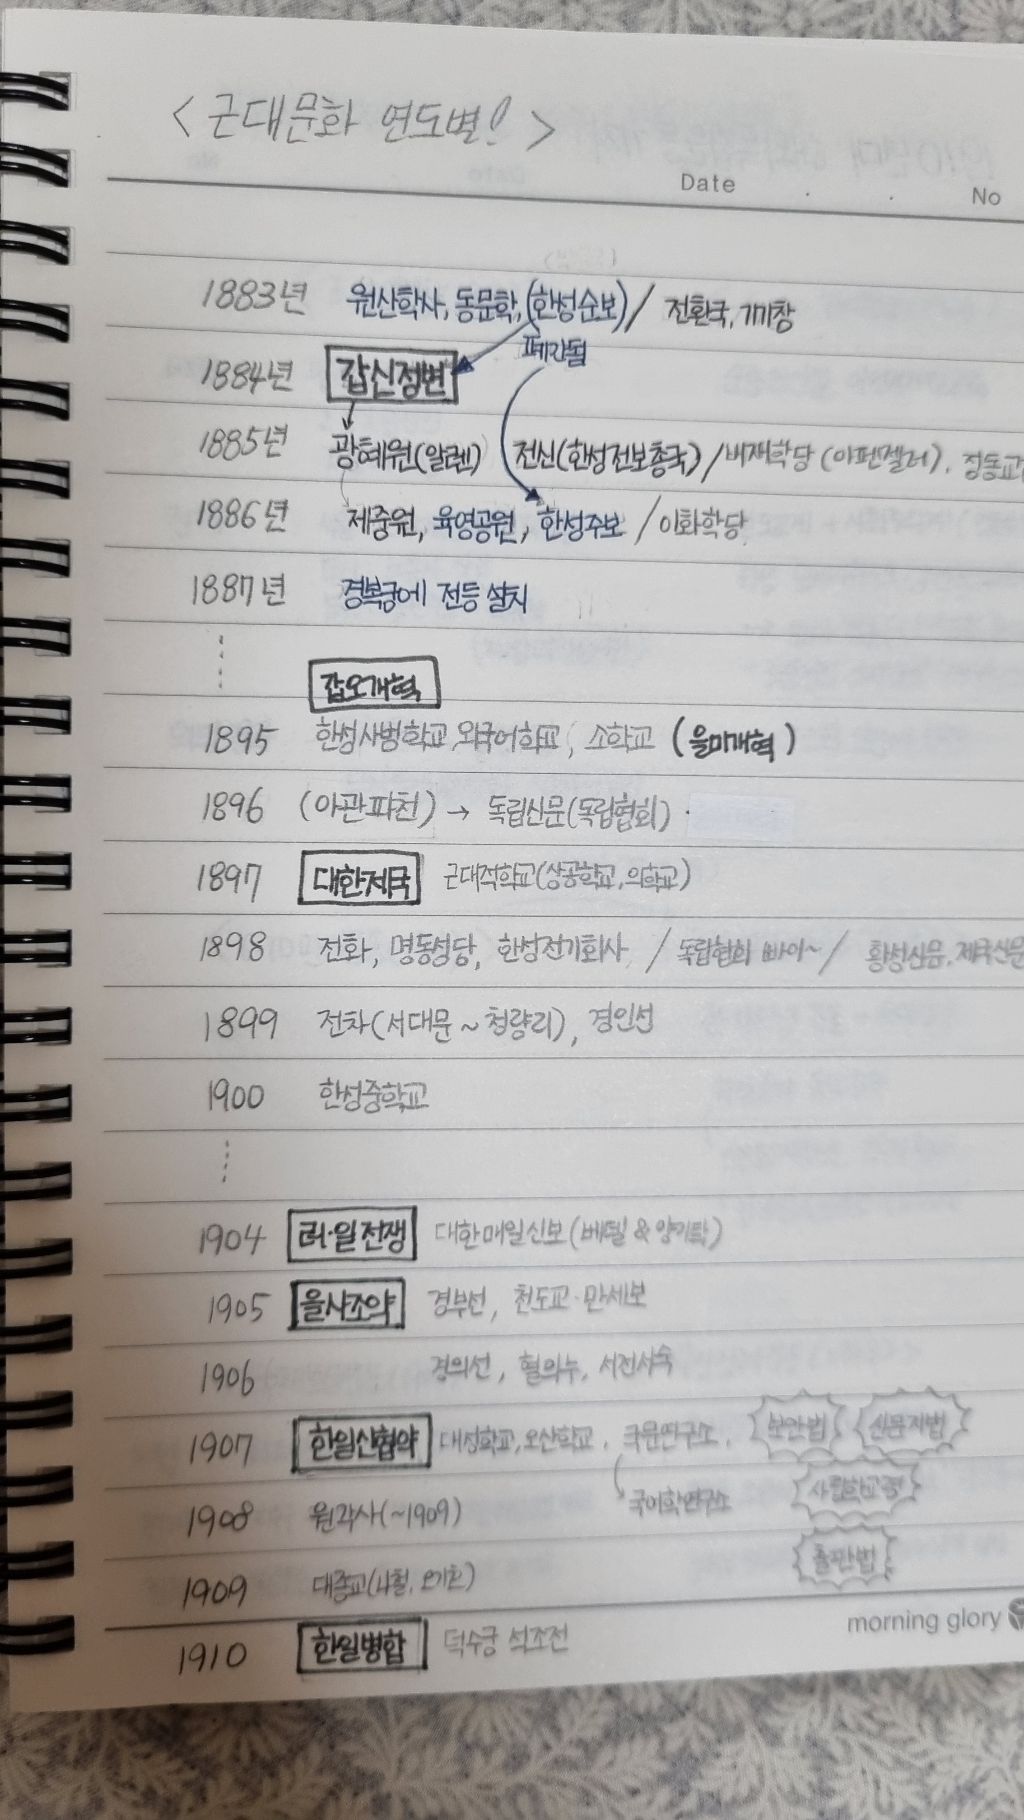 <근대문화 연도별!>
Date . . No
1883년 원산학사, 동문학, (한성순보) / 전환국, 기기창
폐간됨
1884년 갑신정변
1885년 광혜원(알렌) 전신(한성전보총국) / 배재학당 (아펜젤러), 정동교
1886년 제중원, 육영공원, 한성주보 / 이화학당
1887년 경복궁에 전등 설치
갑오개혁
1895 한성사범학교, 외국어학교, 소학교 (을미개혁)
1896 (아관파천) → 독립신문(독립협회)
1897 대한제국 근대적학교(상공학교, 의학교)
1898 전화, 명동성당, 한성전기회사 / 독립협회 빠이~ / 황성신문, 제국신문
1899 전차(서대문~청량리), 경인선
1900 한성중학교
1904 러·일전쟁 대한매일신보(베델 & 양기탁)
1905 을사조약 경부선, 천도교·만세보
1906 경의선, 혈의누, 서전서숙
1907 한일신협약 대성학교, 오산학교, 국문연구소, 보안법 신문지법
1908 원각사(~1909) 국어학연구소 사립학교령
1909 대종교(나철, 오기호) 출판법
morning glory
1910 한일병합 덕수궁 석조전